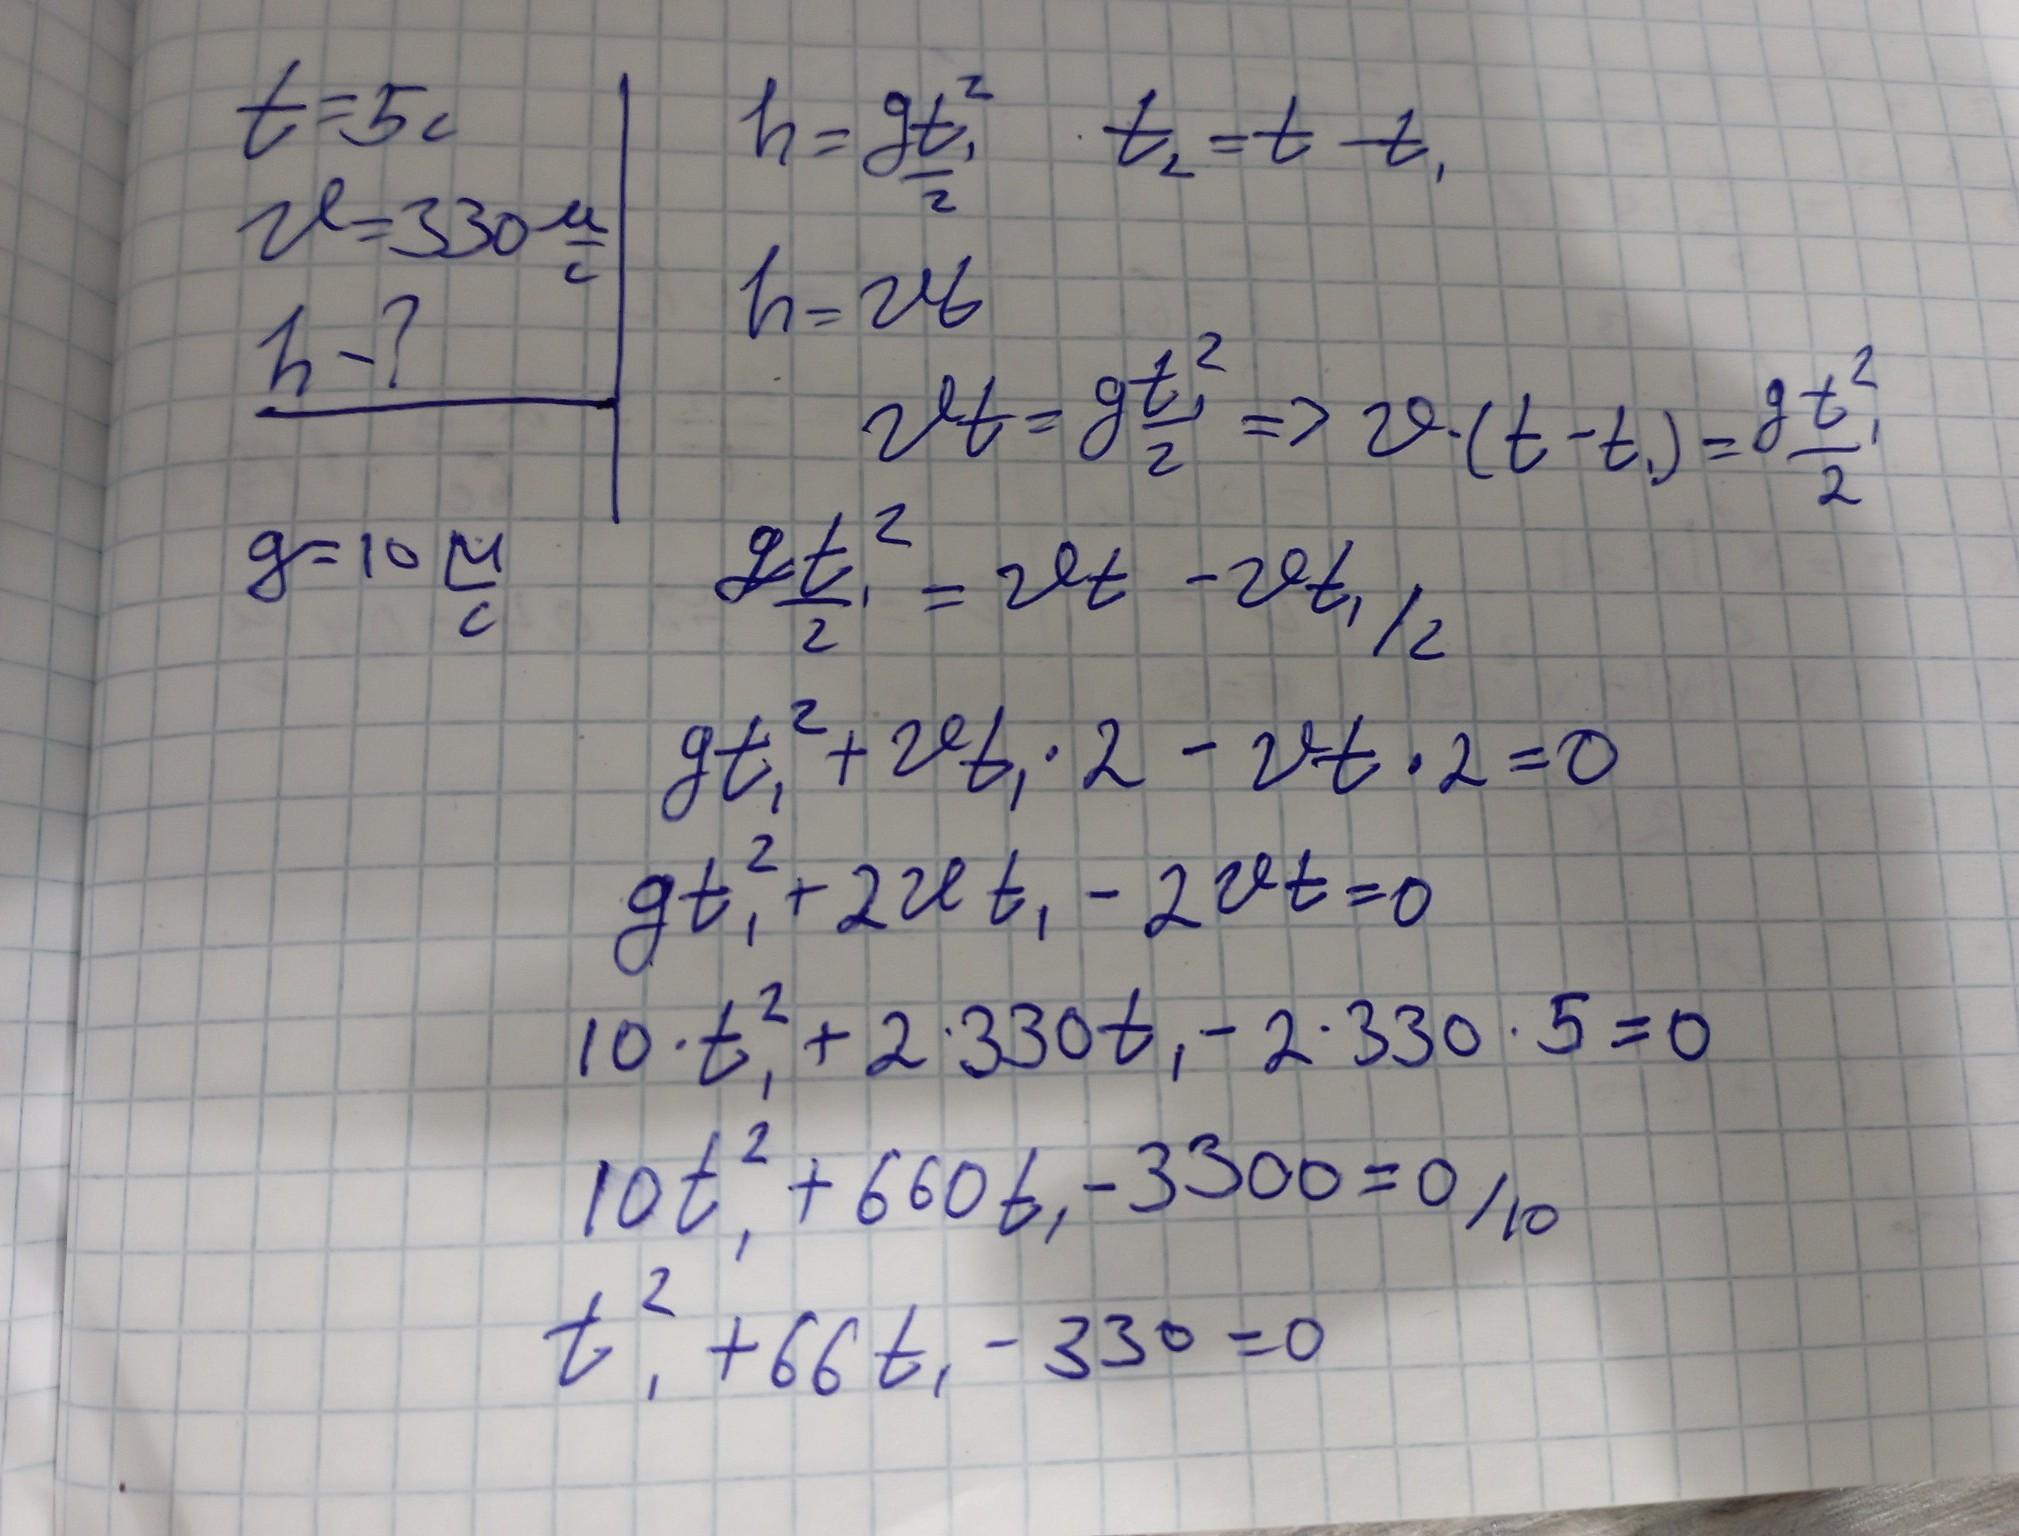 t=5с
v=330 м/с
h-?
g=10 м/с
h=gt₁²/2 · t₂=t-t₁
h=vt
vt=gt₁²/2 => v·(t-t₁)=gt₁²/2
gt₁²/2=vt-vt₁/2
gt₁²+vt₁·2-vt·2=0
gt₁²+2vt₁-2vt=0
10·t₁²+2·330t₁-2·330·5=0
10t₁²+660t₁-3300=0/10
t₁²+66t₁-330=0